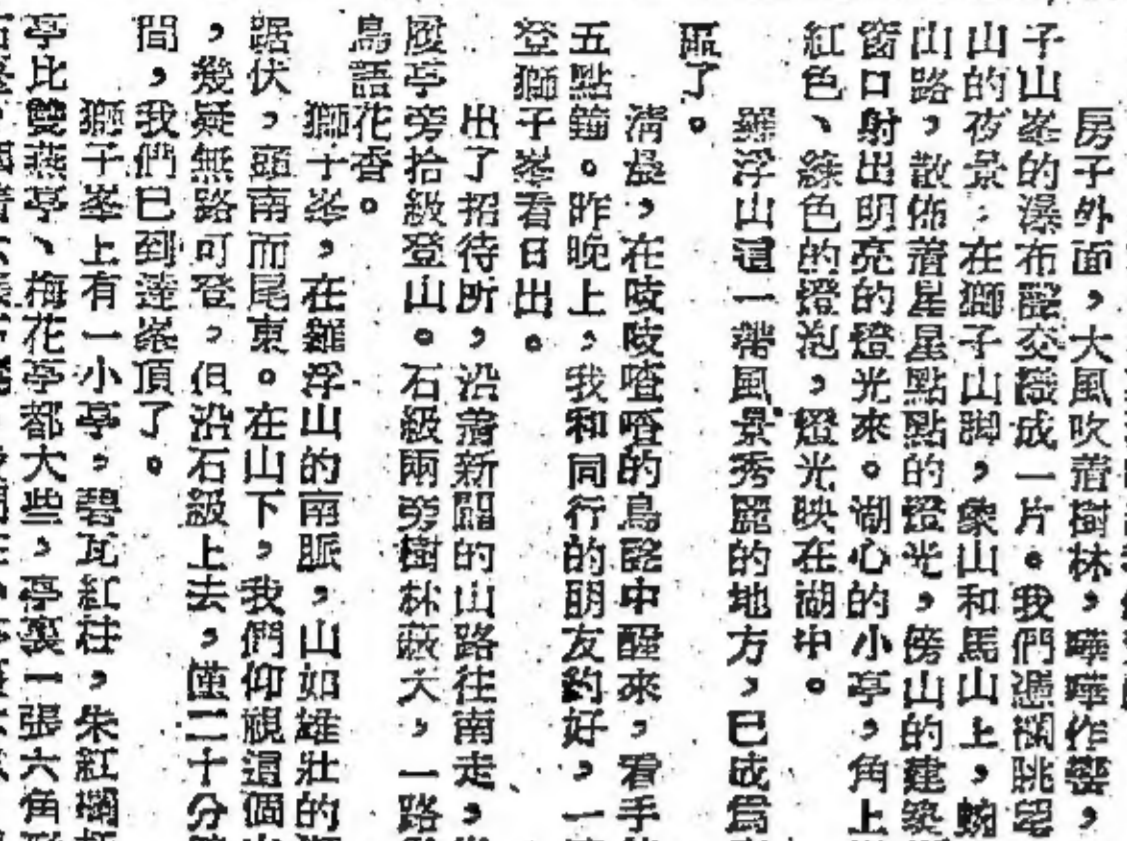 房子外面，大風吹着樹林，嘩嘩作響，
子山峯的瀑布聲交織成一片。我們憑欄眺望
山的夜景：在獅子山脚，象山和馬山上，蜿
山路，散佈着星星點點的燈光，傍山的建築
窗口射出明亮的燈光來。湖心的小亭，角上
紅色、綠色的燈泡，燈光映在湖中。
羅浮山這一帶風景秀麗的地方，已成爲
區了。
清晨，在吱吱喳喳的鳥聲中醒來，看手
五點鐘。昨晚上，我和同行的朋友約好，一
登獅子峯看日出。
出了招待所，沿着新闢的山路往南走，
履亭旁拾級登山。石級兩旁樹林蔽天，一路
鳥語花香。
獅子峯，在羅浮山的南脈，山如雄壯的
踞伏，頭南而尾東。在山下，我們仰視這個
，幾疑無路可登，但沿石級上去，僅二十分
間，我們已到達峯頂了。
獅子峯上有一小亭，碧瓦紅柱，朱紅欄
亭比雙燕亭、梅花亭都大些，亭裏一張六角